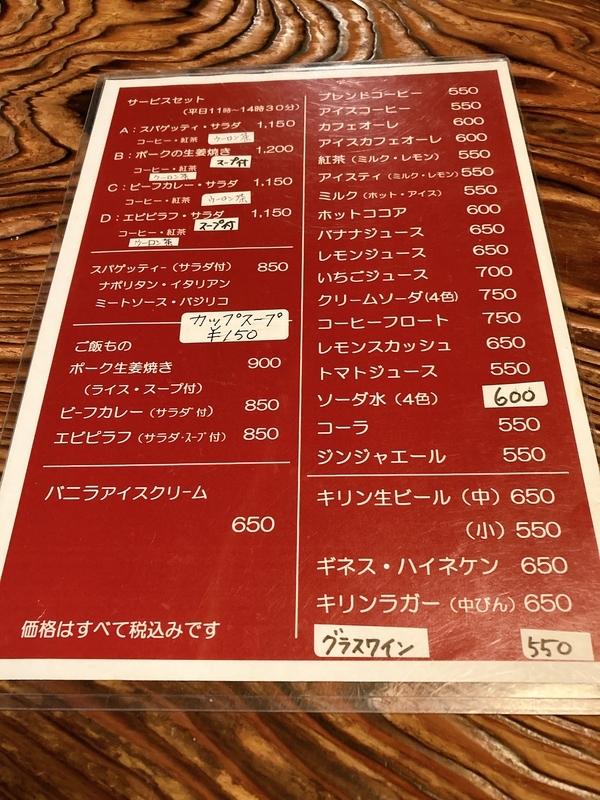 サービスセット
(平日11時~14時30分)
A:スパゲッティ・サラダ 1,150
コーヒー・紅茶 ウーロン茶
B:ポークの生姜焼き 1,200
スープ付
コーヒー・紅茶
ウーロン茶
C:ビーフカレー・サラダ 1,150
コーヒー・紅茶 ウーロン茶
D:エビピラフ・サラダ 1,150
コーヒー・紅茶 スープ付
ウーロン茶
スパゲッティー(サラダ付) 850
ナポリタン・イタリアン
ミートソース・バジリコ
カップスープ
¥150
ご飯もの
ポーク生姜焼き 900
(ライス・スープ付)
ビーフカレー(サラダ付) 850
エビピラフ(サラダ・スープ付) 850
バニラアイスクリーム
650
価格はすべて税込みです
ブレンドコーヒー 550
アイスコーヒー 550
カフェオーレ 600
アイスカフェオーレ 600
紅茶(ミルク・レモン) 550
アイスティ(ミルク・レモン) 550
ミルク(ホット・アイス) 550
ホットココア 600
バナナジュース 650
レモンジュース 650
いちごジュース 700
クリームソーダ(4色) 750
コーヒーフロート 750
レモンスカッシュ 650
トマトジュース 550
ソーダ水(4色) 600
コーラ 550
ジンジャエール 550
キリン生ビール(中) 650
(小) 550
ギネス・ハイネケン 650
キリンラガー(中びん) 650
グラスワイン 550